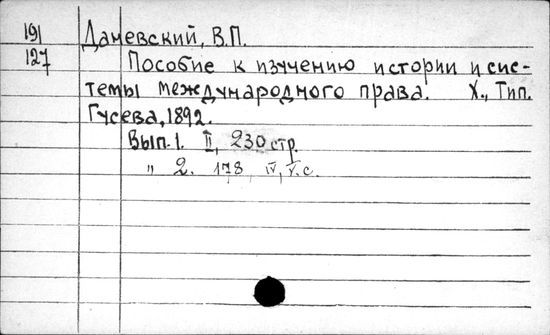 191 Даневский, В.П.
127 Пособие к изучению истории и сис-
темы международного права. Х., Тип.
Гусева, 1892.
Вып. 1. II, 230 стр.
" 2. 178, IV, V.с.